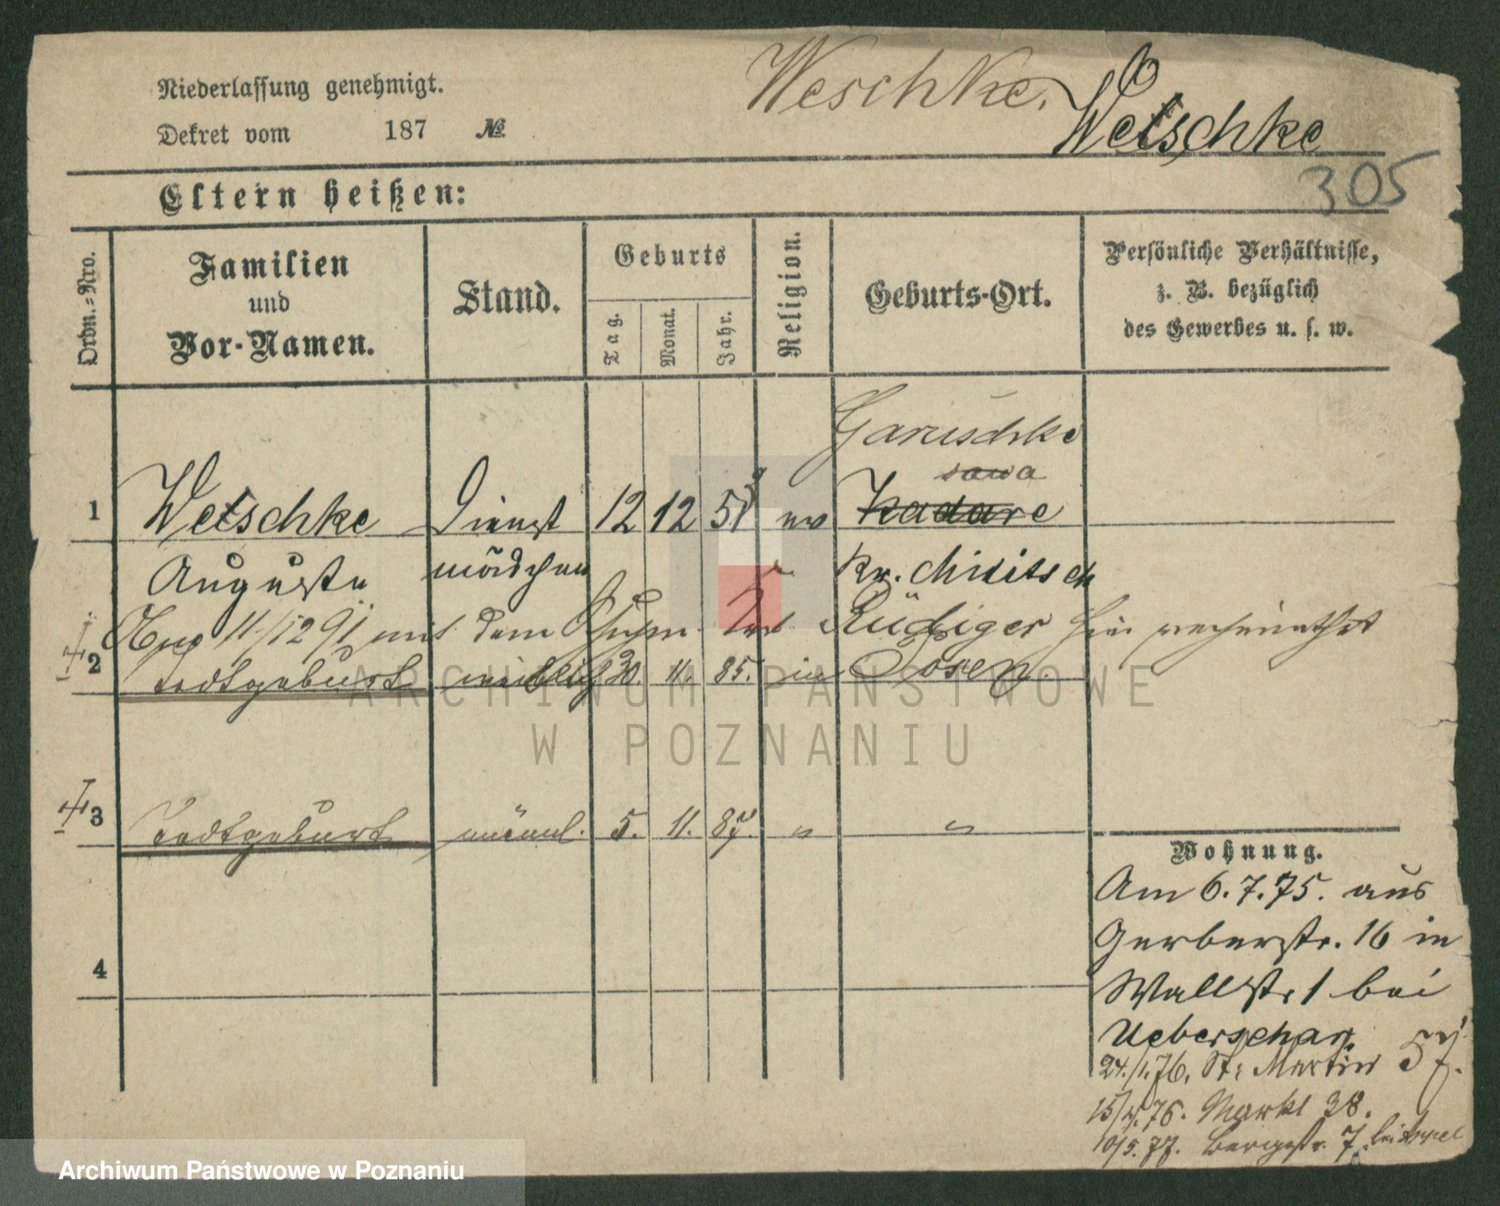 Niederlassung genehmigt.
Dekret vom 187 №
Weschke.
Wetschke
305
Eltern heißen:
Ordn.=Nro.
Familien
und
Vor-Namen.
Stand.
Geburts
Tag.
Monat.
Jahr.
Religion.
Geburts-Ort.
Persönliche Verhältnisse,
z. B. bezüglich
des Gewerbes u. s. w.
Garuschke
sawa
1 Wetschke Dienst 12 12 ev Kadare
Auguste mädchen Kr.
11/12 91 mit dem Rüdiger hier verheirathet
2 Todtgeburt weiblich 30 11. 85. in Posen.
3 Todtgeburt männl. 5. 11. 87. " "
4
Wohnung.
Am 6.7.75. aus
Gerberstr. 16 in
Wallstr 1 bei
Ueberschar.
24./1.76. St. Martin 57.
15/4.76. Markt 38.
10/5.77. Bergstr. 7. bei
ARCHIWUM PAŃSTWOWE
W POZNANIU
Archiwum Państwowe w Poznaniu